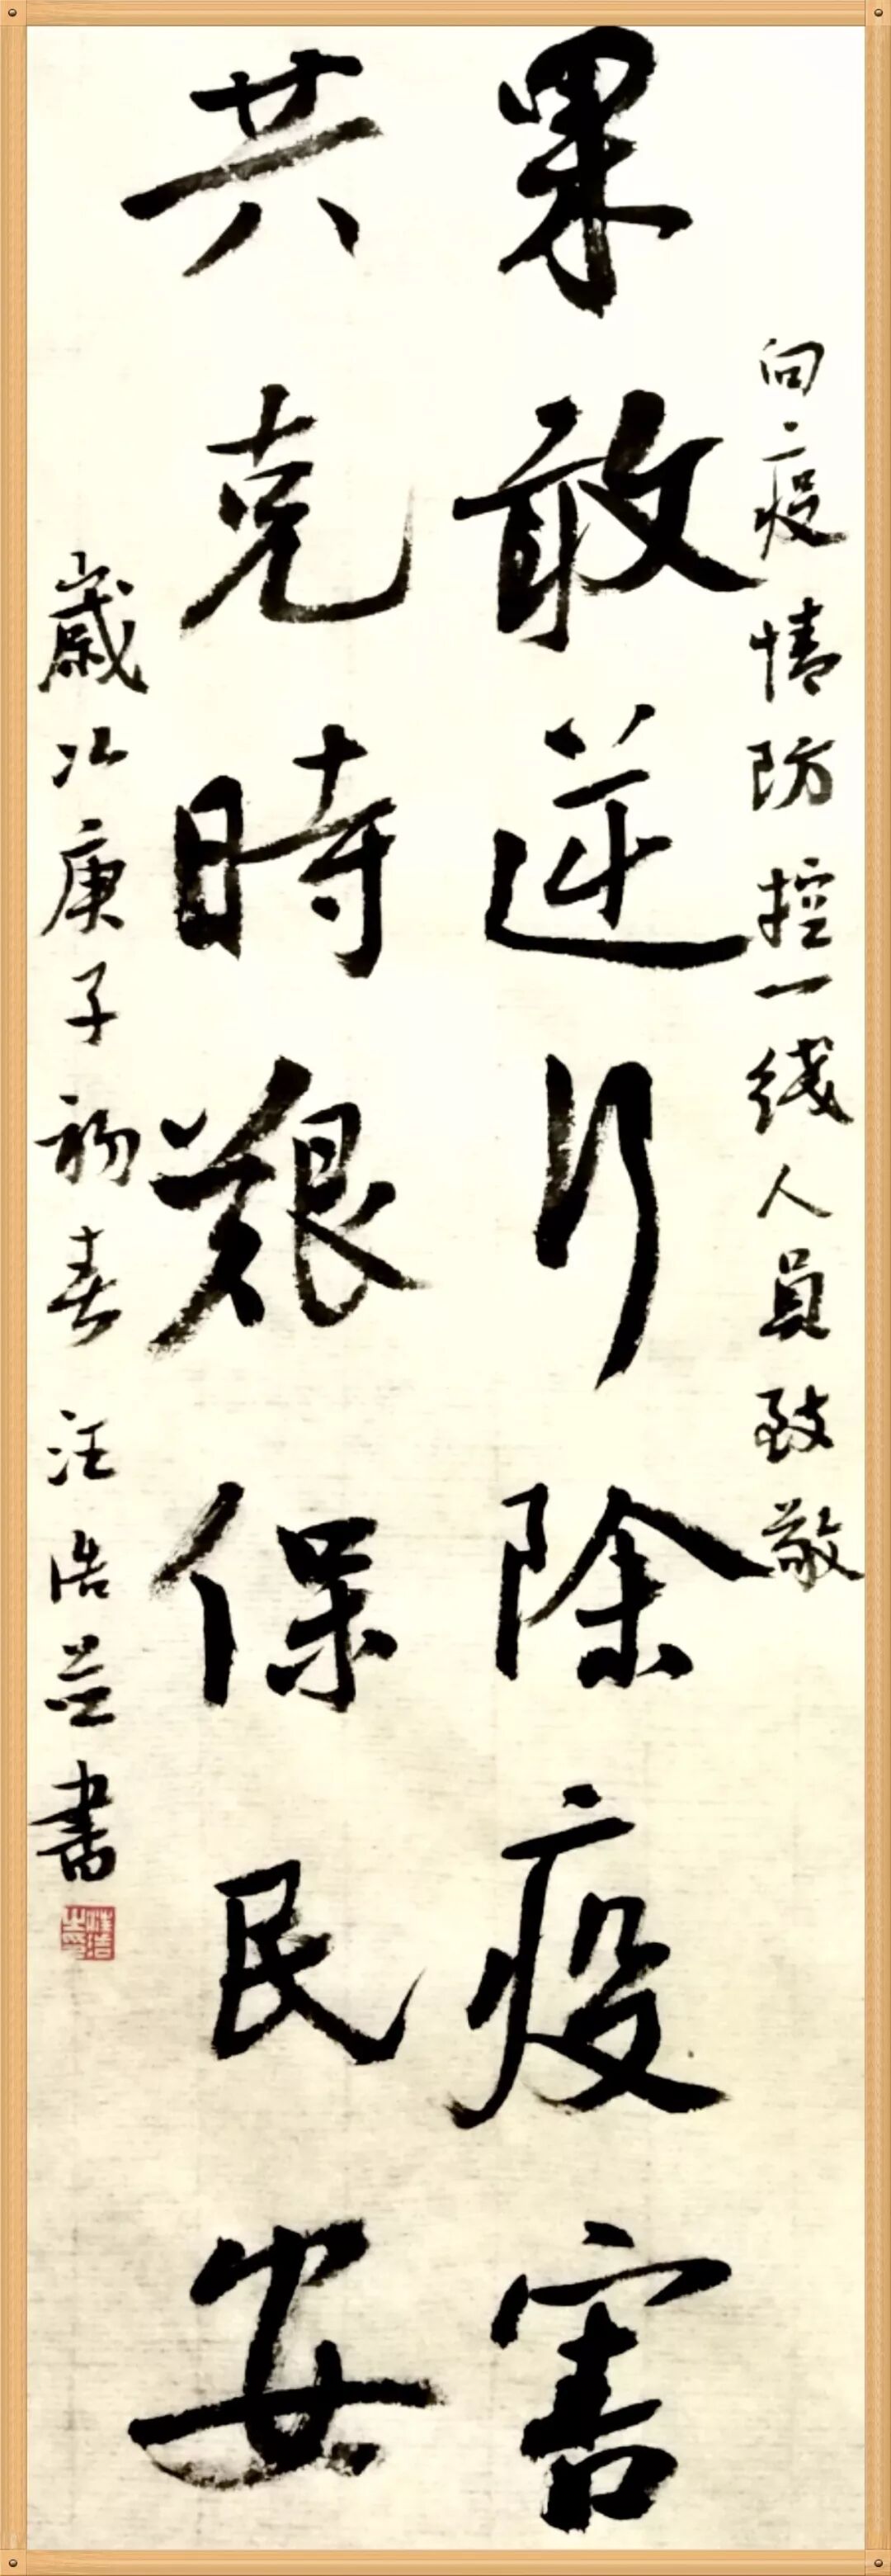 向疫情防控一綫人員致敬
果敢逆行除疫害
共克時艱保民安
歲次庚子初春汪浩並書
汪浩之印